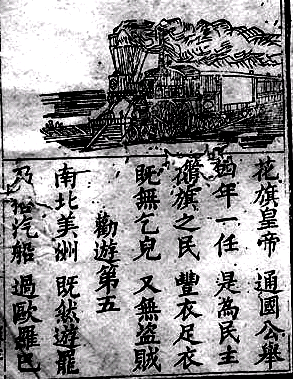 花旗皇帝 通國公舉
年一任 是為民主
旗之民 豐衣足衣
既無乞兒 又無盜賊
勸遊第五
南北美洲 既然遊罷
乃汽船 過歐羅巴